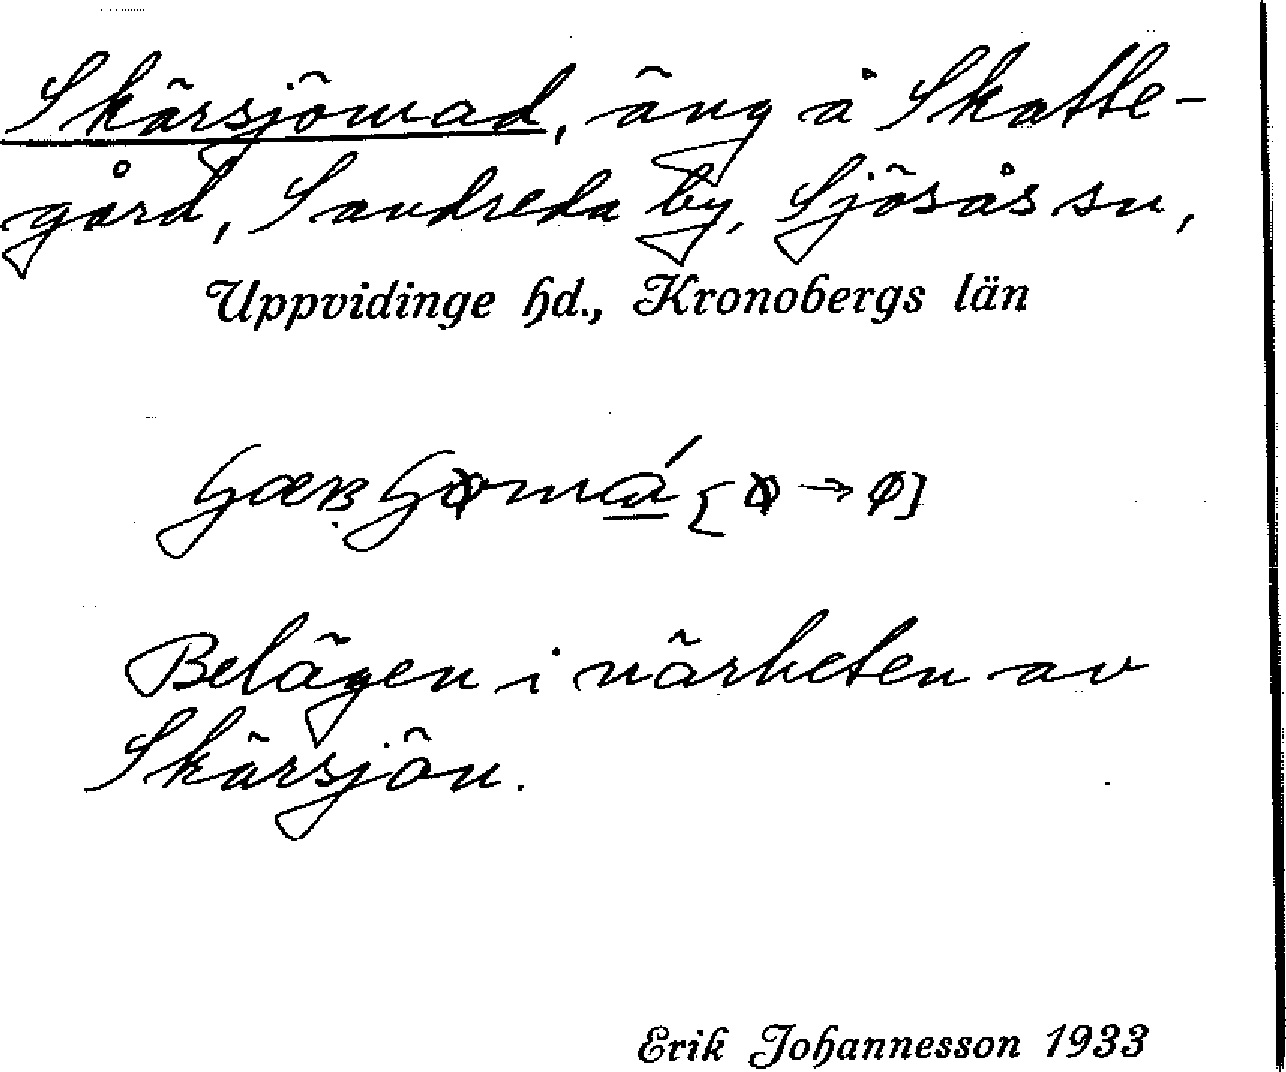 Skärsjömad, äng å Skatte-
gård, Sandreda by, Sjösås sn,
Uppvidinge hd., Kronobergs län
Belägen i närheten av
Skärsjön.
Erik Johannesson 1933